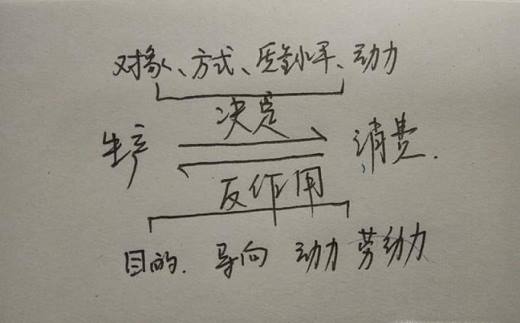 对象、方式、质量水平、动力
决定
生产 消费.
反作用
目的. 导向 动力 劳动力